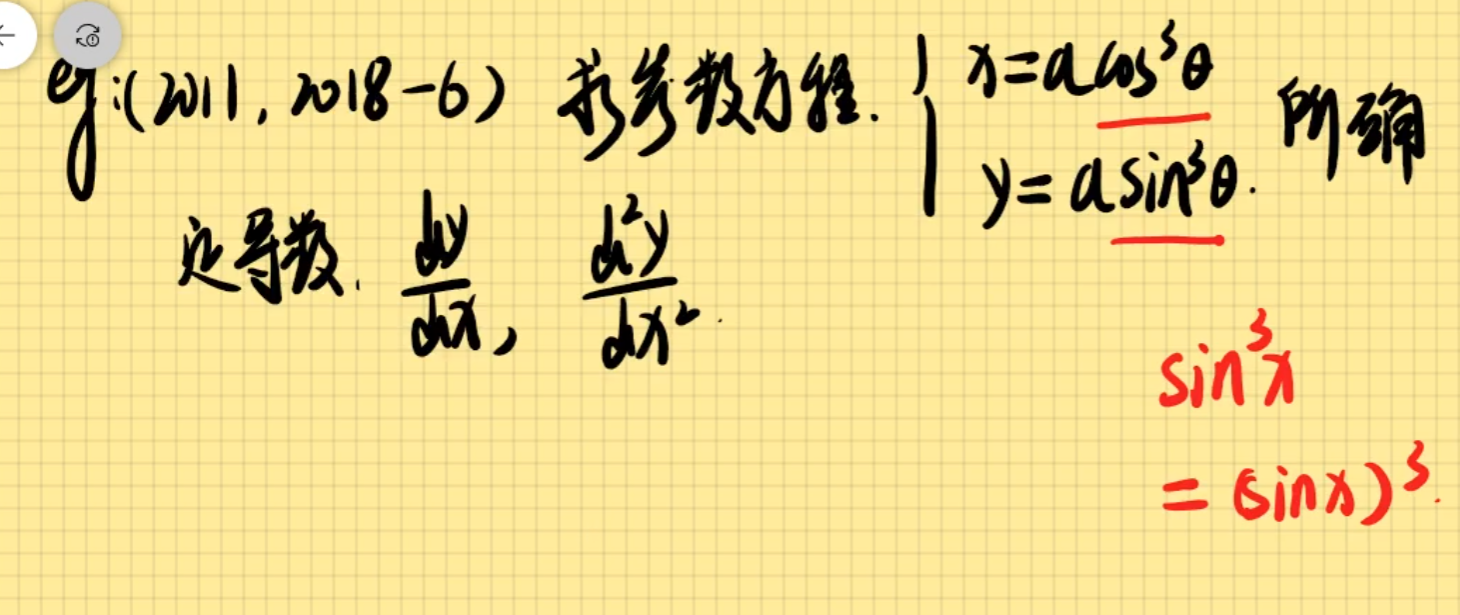 eg:(2011, 2018-6) 求参数方程. { x=acos³θ
y=asin³θ. 所确
定导数. dy/dx, d²y/dx².
sin³x
= (sinx)³.